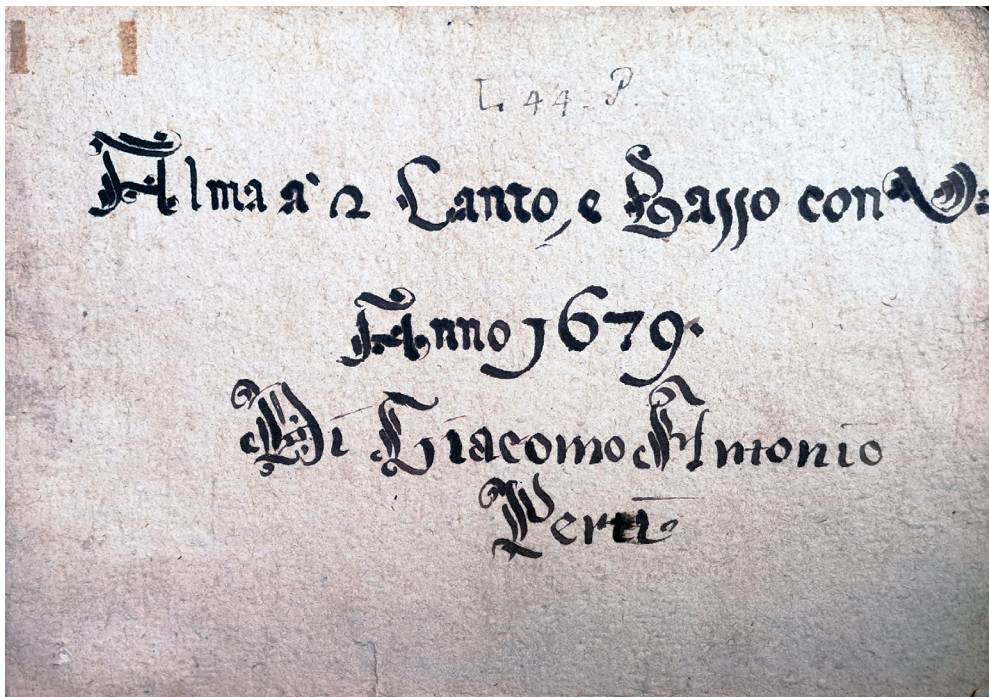 L. 44. P.
Alma a' 2 Canto, e Basso con V:
Anno 1679.
Di Giacomo Antonio
Perti